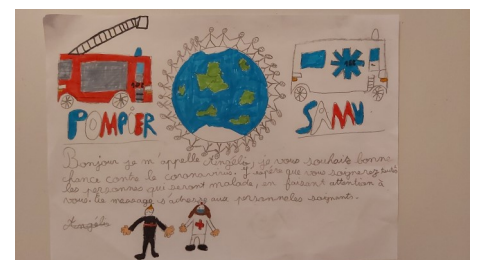 POMPIER
SAMU
Bonjour je m'appelle Angélis, je vous souhaite bonne
chance contre le coronavirus, j'éspère que vous soignerez toute
les personnes qui seront malade, en faisant attention à
vous. Ce message s'adresse aux personnels soignants.
Angélis